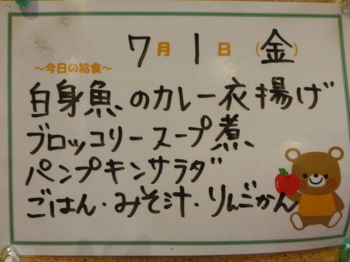 7月1日(金)
～今日の給食～
白身魚のカレー衣揚げ
ブロッコリースープ煮
パンプキンサラダ
ごはん・みそ汁・りんごかん